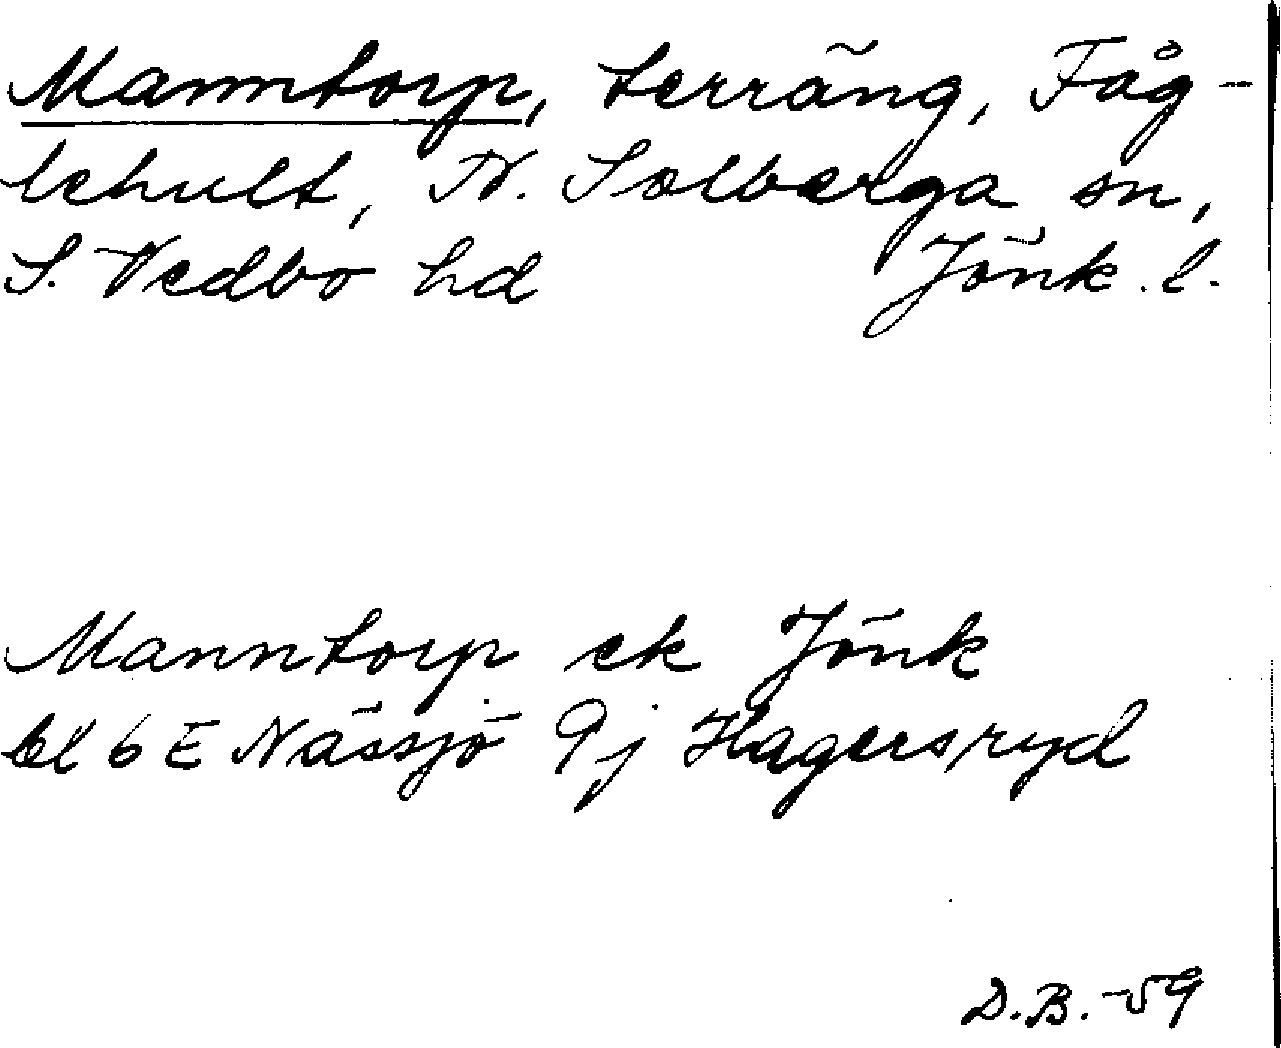 Manntorp, terräng, Fåg-
lehult, N. Solberga sn,
S. Vedbo hd Jönk. l.
Manntorp ek Jönk
bl 6 E Nässjö 9j Hagersryd
D.B.-59